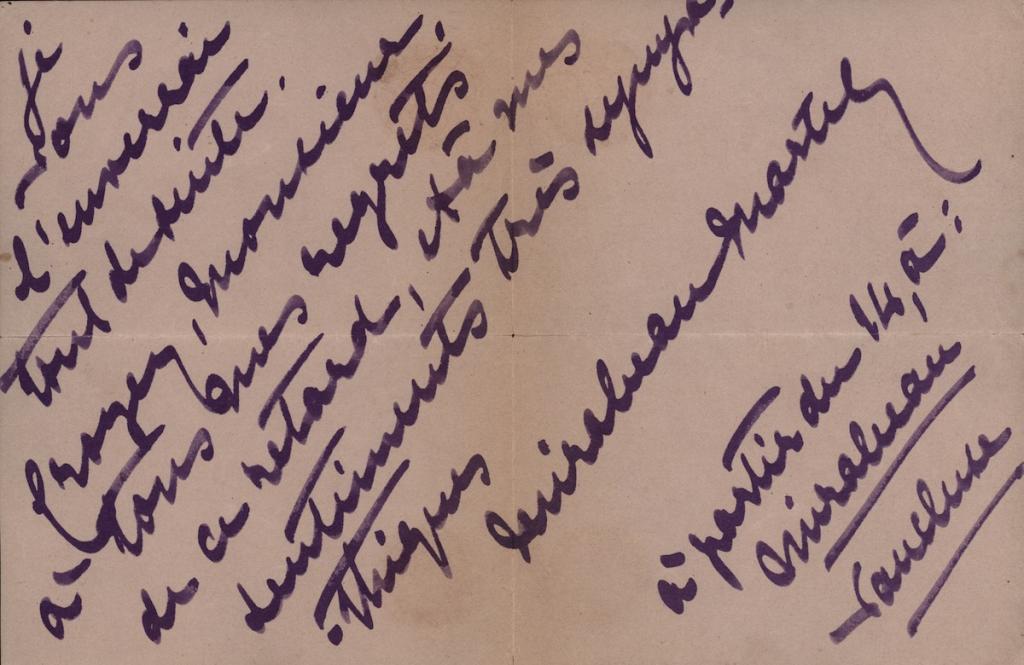 je
vous
l'enverrai
tout de suite.
Croyez, Monsieur,
à tous mes regrets
de ce retard, et à mes
sentiments très sympa-
-thiques
Mirabeau Martel
à partir du 14, à :
Mirabeau
Vaucluse